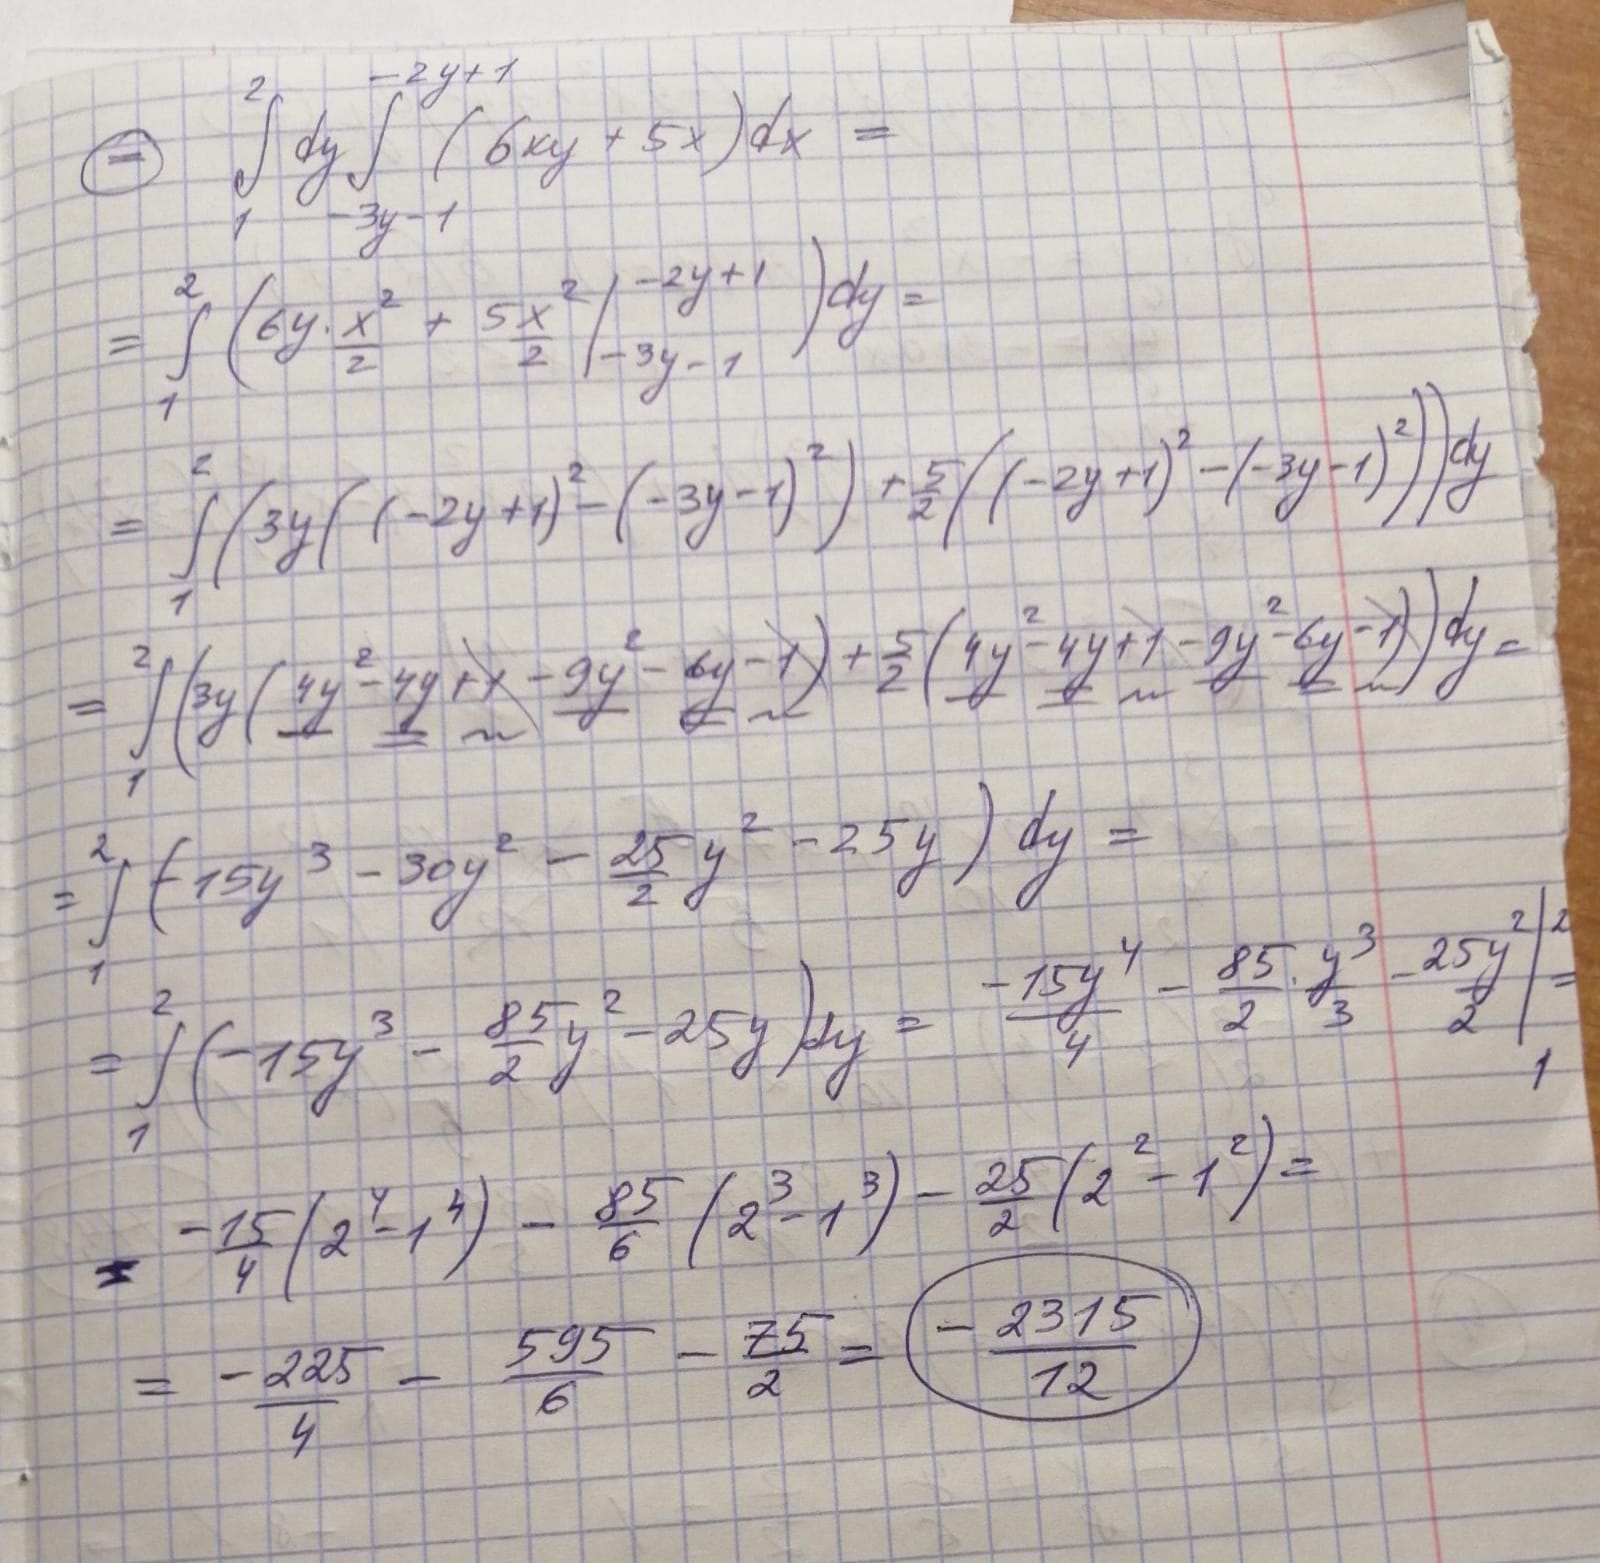 = ∫₁² dy ∫_{-3y-1}^{-2y+1} (6xy + 5x)dx =
= ∫₁² (6y · x²/2 + 5x²/2 |_{-3y-1}^{-2y+1}) dy =
= ∫₁² (3y((-2y+1)² - (-3y-1)²) + 5/2((-2y+1)² - (-3y-1)²)) dy
= ∫₁² (3y(4y² - 4y + 1 - 9y² - 6y - 1) + 5/2(4y² - 4y + 1 - 9y² - 6y - 1)) dy =
= ∫₁² (-15y³ - 30y² - 25/2 y² - 25y) dy =
= ∫₁² (-15y³ - 85/2 y² - 25y) dy = -15y⁴/4 - 85/2 · y³/3 - 25y²/2 |₁² =
= -15/4 (2⁴ - 1⁴) - 85/6 (2³ - 1³) - 25/2 (2² - 1²) =
= -225/4 - 595/6 - 75/2 = -2315/12